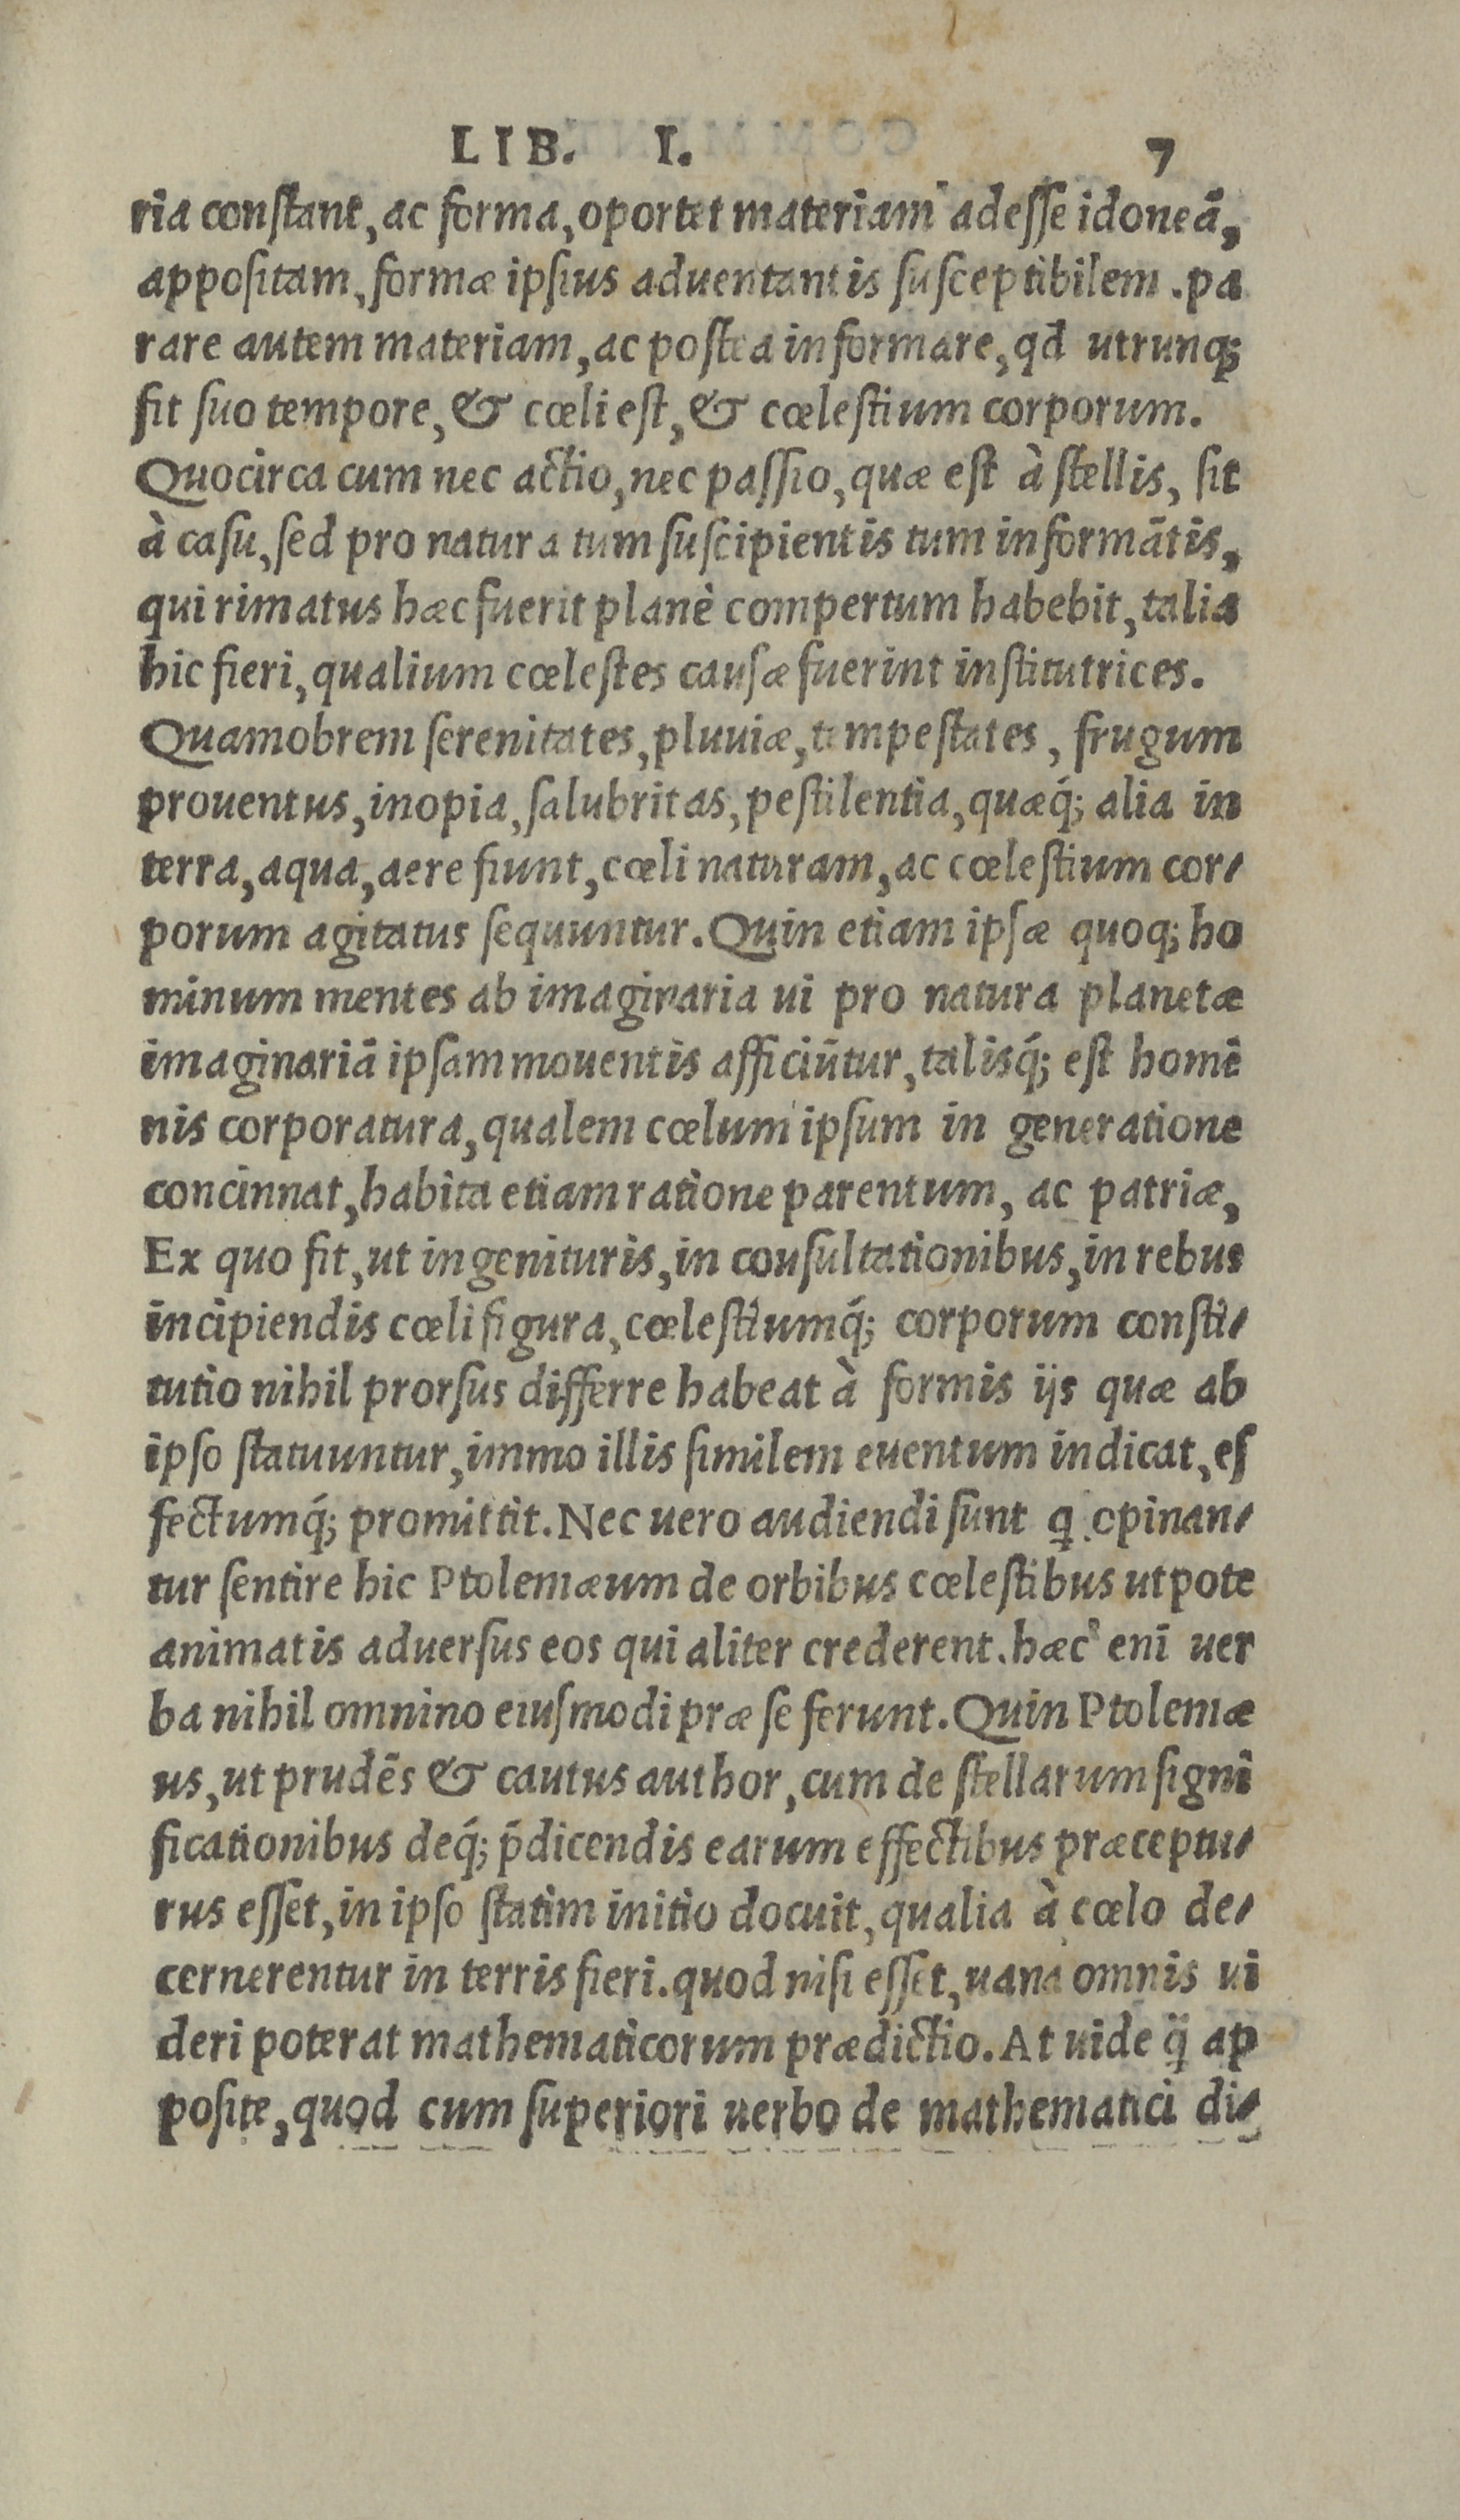 LIB. I. 7
ria constant, ac forma, oportet materiam adesse idoneā,
appositam, formæ ipsius aduentantis susceptibilem. pa
rare autem materiam, ac postea informare, qđ utrunq;
fit suo tempore, & cœli est, & cœlestium corporum.
Quocirca cum nec actio, nec passio, quæ est à stellis, sit
à casu, sed pro natura tum suscipientis tum informātis,
qui rimatus hæc fuerit planè compertum habebit, talia
hic fieri, qualium cœlestes causæ fuerint institutrices.
Quamobrem serenitates, pluuiæ, tempestates, frugum
prouentus, inopia, salubritas, pestilentia, quæq́; alia in
terra, aqua, aere fiunt, cœli naturam, ac cœlestium cor/
porum agitatus sequuntur. Quin etiam ipsæ quoq; ho
minum mentes ab imaginaria ui pro natura planetæ
imaginariā ipsam mouentis afficiūtur, talisq́; est homi
nis corporatura, qualem cœlum ipsum in generatione
concinnat, habita etiam ratione parentum, ac patriæ,
Ex quo fit, ut in genituris, in cousultationibus, in rebus
incipiendis cœli figura, cœlestiumq́; corporum consti/
tutio nihil prorsus differre habeat à formis ijs quæ ab
ipso statuuntur, immo illis similem euentum indicat, ef
fectumq́; promittit. Nec uero audiendi sunt q opinan/
tur sentire hic Ptolemæum de orbibus cœlestibus utpote
animatis aduersus eos qui aliter crederent. hæc enī uer
ba nihil omnino eiusmodi præ se ferunt. Quin Ptolemæ
us, ut prudēs & cautus author, cum de stellarum signi
ficationibus deq́; p̄dicendis earum effectibus præceptu/
rus esset, in ipso statim initio docuit, qualia à cœlo de/
cernerentur in terris fieri. quod nisi esset, uana omnis ui
deri poterat mathematicorum prædictio. At uide q̄ ap
posite, quod cum superiori uerbo de mathematici di/